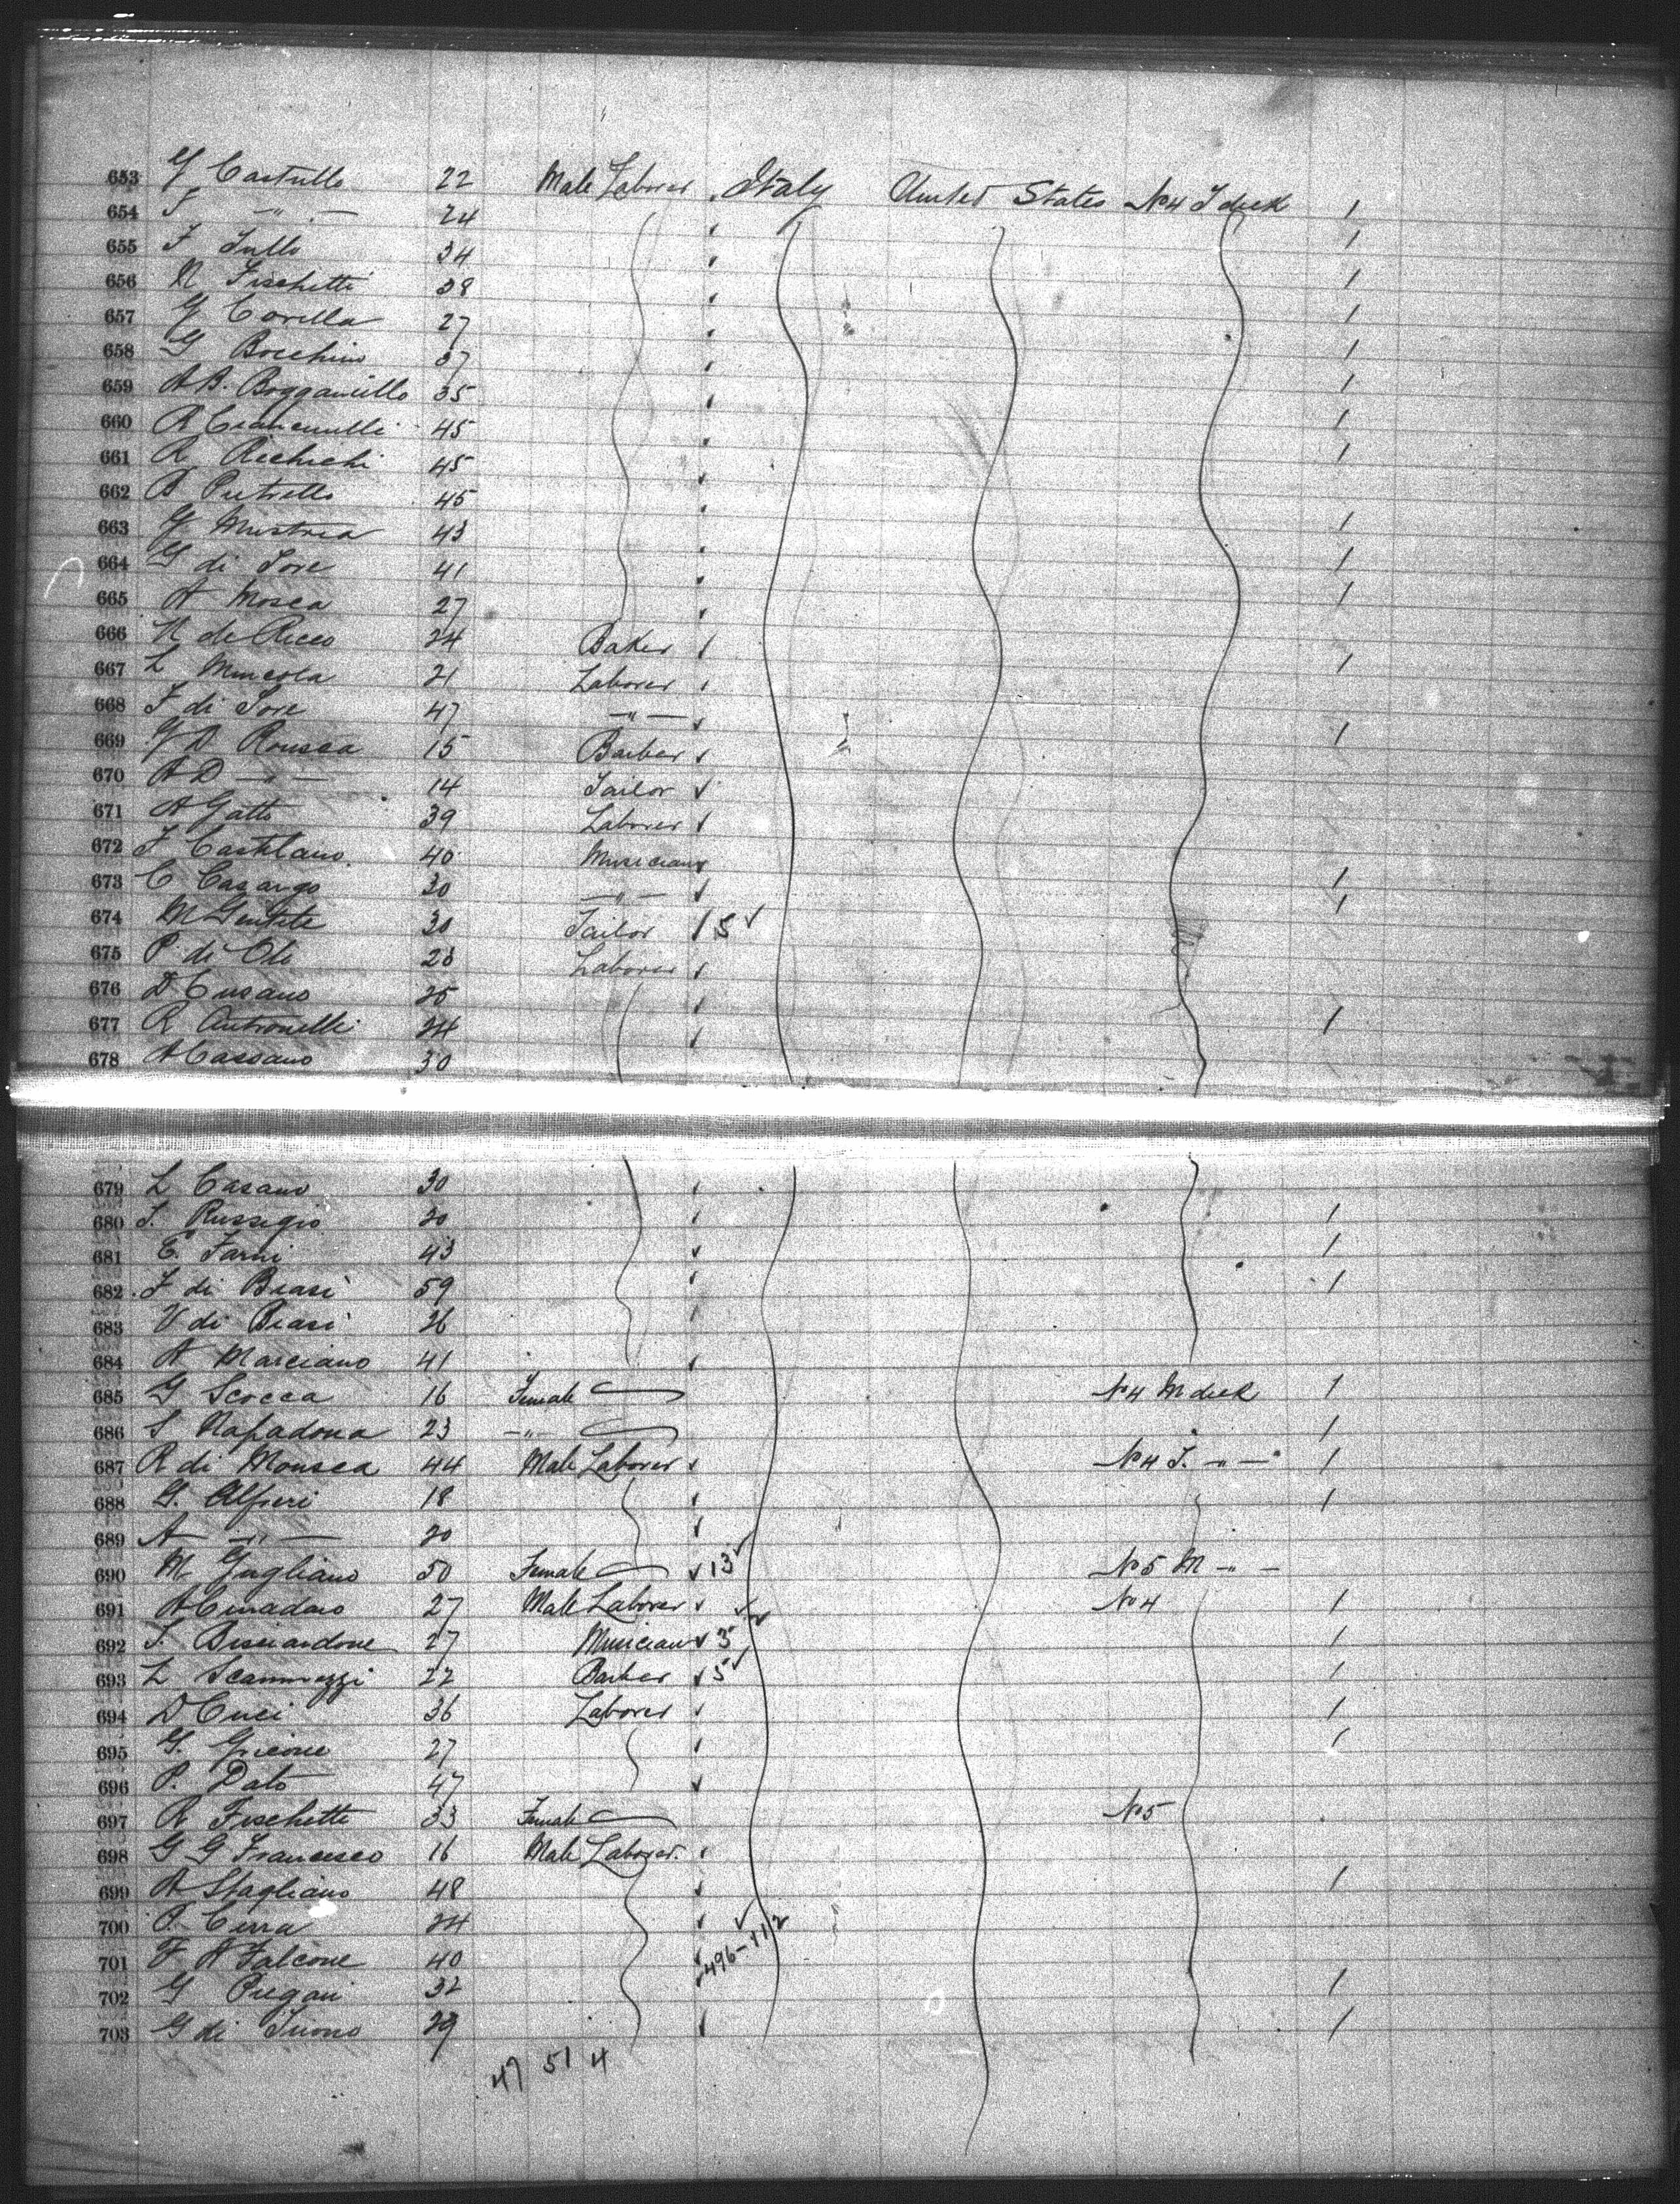 653 G Castullo 22 Male Laborer Italy United States No4 T deck /
654 F — " — 24 /
655 F Tullo 34 /
656 N Fischetti 38 /
657 G Covella 27 /
658 G Bocchino 37 /
659 A B. 35 /
660 R 45 /
661 R Richichi 45 /
662 B Pietrello 45
663 G Mustrea 43 /
664 G di Iore 41 /
665 A Mosca 27 /
666 N de Ricco 24 Baker
667 L Muscola 21 Laborer /
668 F di Iore 47 — " —
669 G D Rousca 15 Barber /
670 A D — " — 14 Tailor
671 A Gatto 39 Laborer
672 F Castelano 40 Musician
673 C Casango 30 — " — /
674 M Gentile 30 Tailor 15 /
675 P di Olo 28 Laborer
676 D Cusano 25
677 R Antronelli 24 /
678 A Cassano 30
679 L Casano 30
680 S. Russigio 20 /
681 E. Farni 43 /
682 F di Biasi 59 /
683 V di Biasi 26
684 A Marciano 41
685 G Scocca 16 Female No4 M deck /
686 S Napadona 23 — " — /
687 R di Mousca 44 Male Laborer No4 T. — " — /
688 G. Alfieri 18 /
689 A — " — 20
690 M Gugliano 50 Female 13 No5 M — " —
691 A 27 Male Laborer No4 /
692 S. Bisciardone 27 Musician 3 /
693 L Scammezzi 22 Barber 5 /
694 D Cuci 36 Laborer /
695 G. Gricone 27 /
696 P. Dato 47
697 R Fischetti 33 Female No5
698 G G Francesco 16 Male Laborer.
699 A Stagliano 48 /
700 P. Cerra 24
701 F A Falcone 40 496-112
702 G Pregari 32 /
703 G di Iuono 29 /
47 51 4